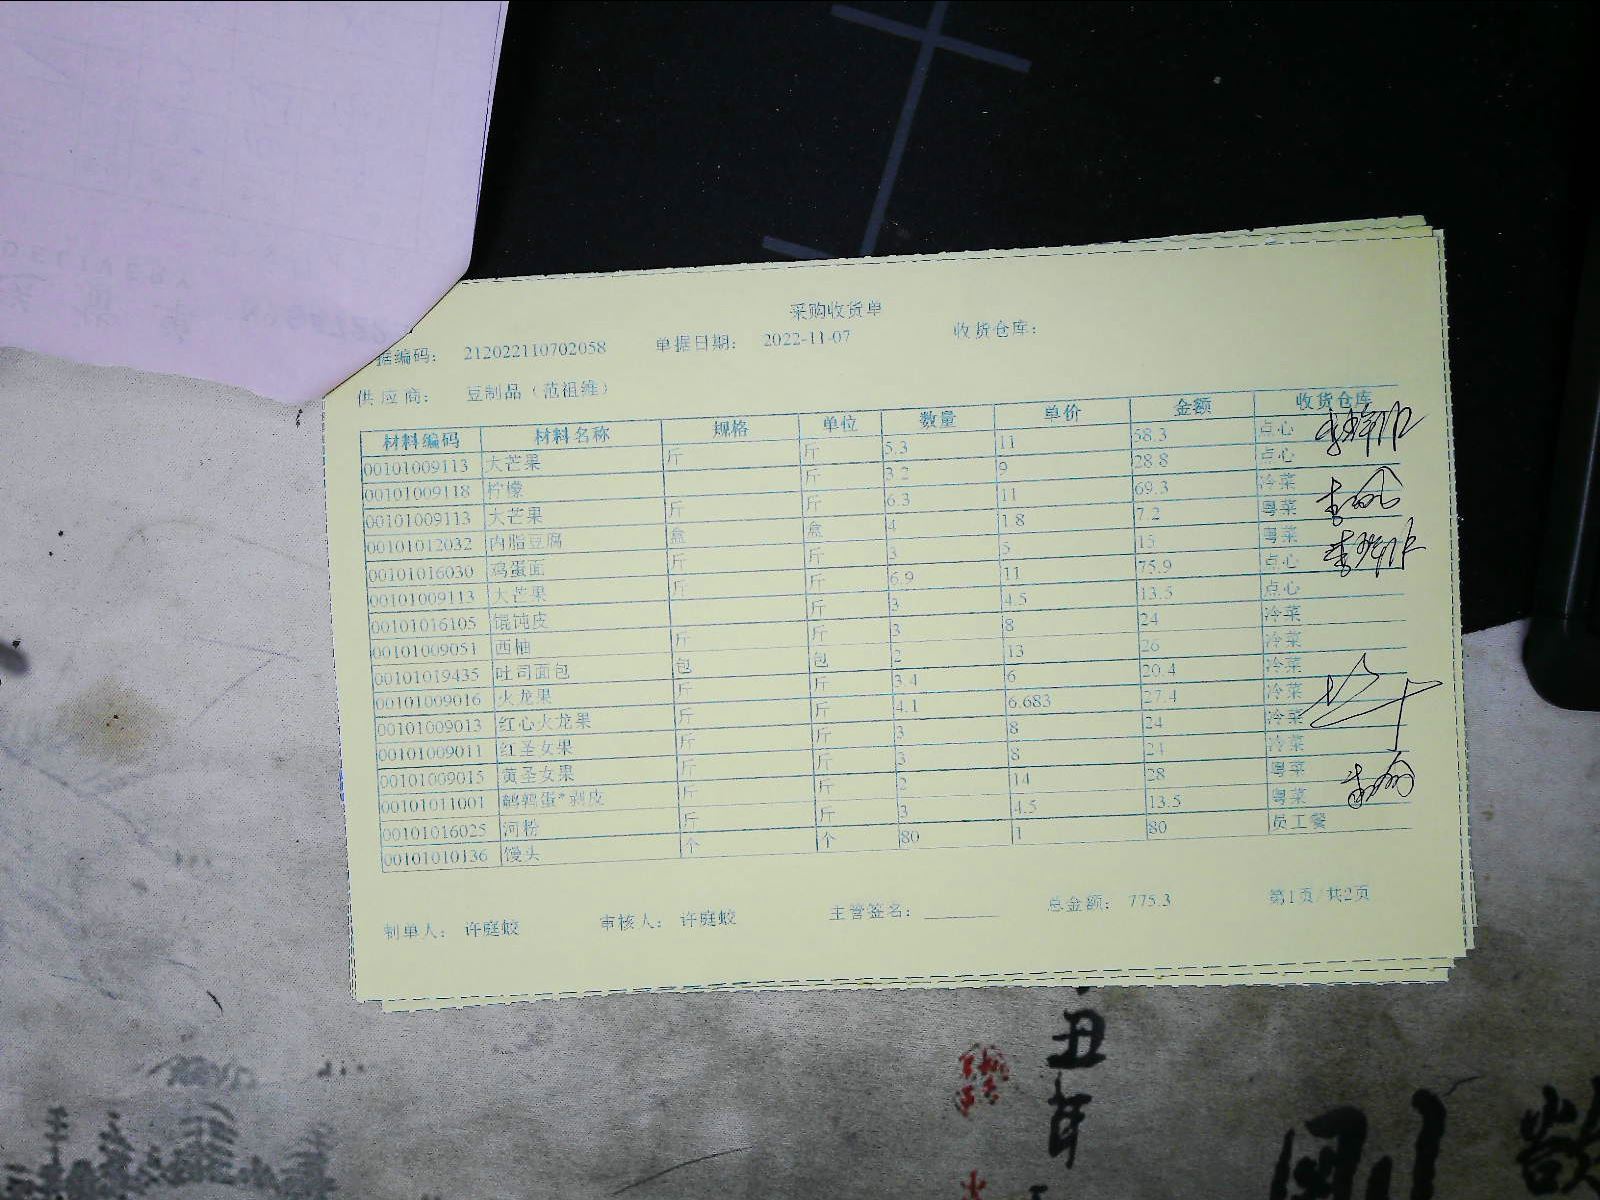 采购收货单
据编码: 212022110702058 单据日期: 2022-11-07 收货仓库:
供应商: 豆制品（范祖维）
材料编码 材料名称 规格 单位 数量 单价 金额 收货仓库
00101009113 大芒果 斤 斤 5.3 11 58.3 点心
00101009118 柠檬 斤 3.2 9 28.8 点心
00101009113 大芒果 斤 斤 6.3 11 69.3 冷菜
00101012032 内脂豆腐 盒 盒 4 1.8 7.2 粤菜
00101016030 鸡蛋面 斤 斤 3 5 15 粤菜
00101009113 大芒果 斤 斤 6.9 11 75.9 点心
00101016105 馄饨皮 斤 3 4.5 13.5 点心
00101009051 西柚 斤 斤 3 8 24 冷菜
00101019435 吐司面包 包 包 2 13 26 冷菜
00101009016 火龙果 斤 斤 3.4 6 20.4 冷菜
00101009013 红心火龙果 斤 斤 4.1 6.683 27.4 冷菜
00101009011 红圣女果 斤 斤 3 8 24 冷菜
00101009015 黄圣女果 斤 斤 3 8 24 冷菜
00101011001 鹌鹑蛋*剥皮 斤 斤 2 14 28 粤菜
00101016025 河粉 斤 斤 3 4.5 13.5 粤菜
00101010136 馒头 个 个 80 1 80 员工餐
制单人: 许庭蛟 审核人: 许庭蛟 主管签名: 总金额: 775.3 第1页/共2页
丑
年